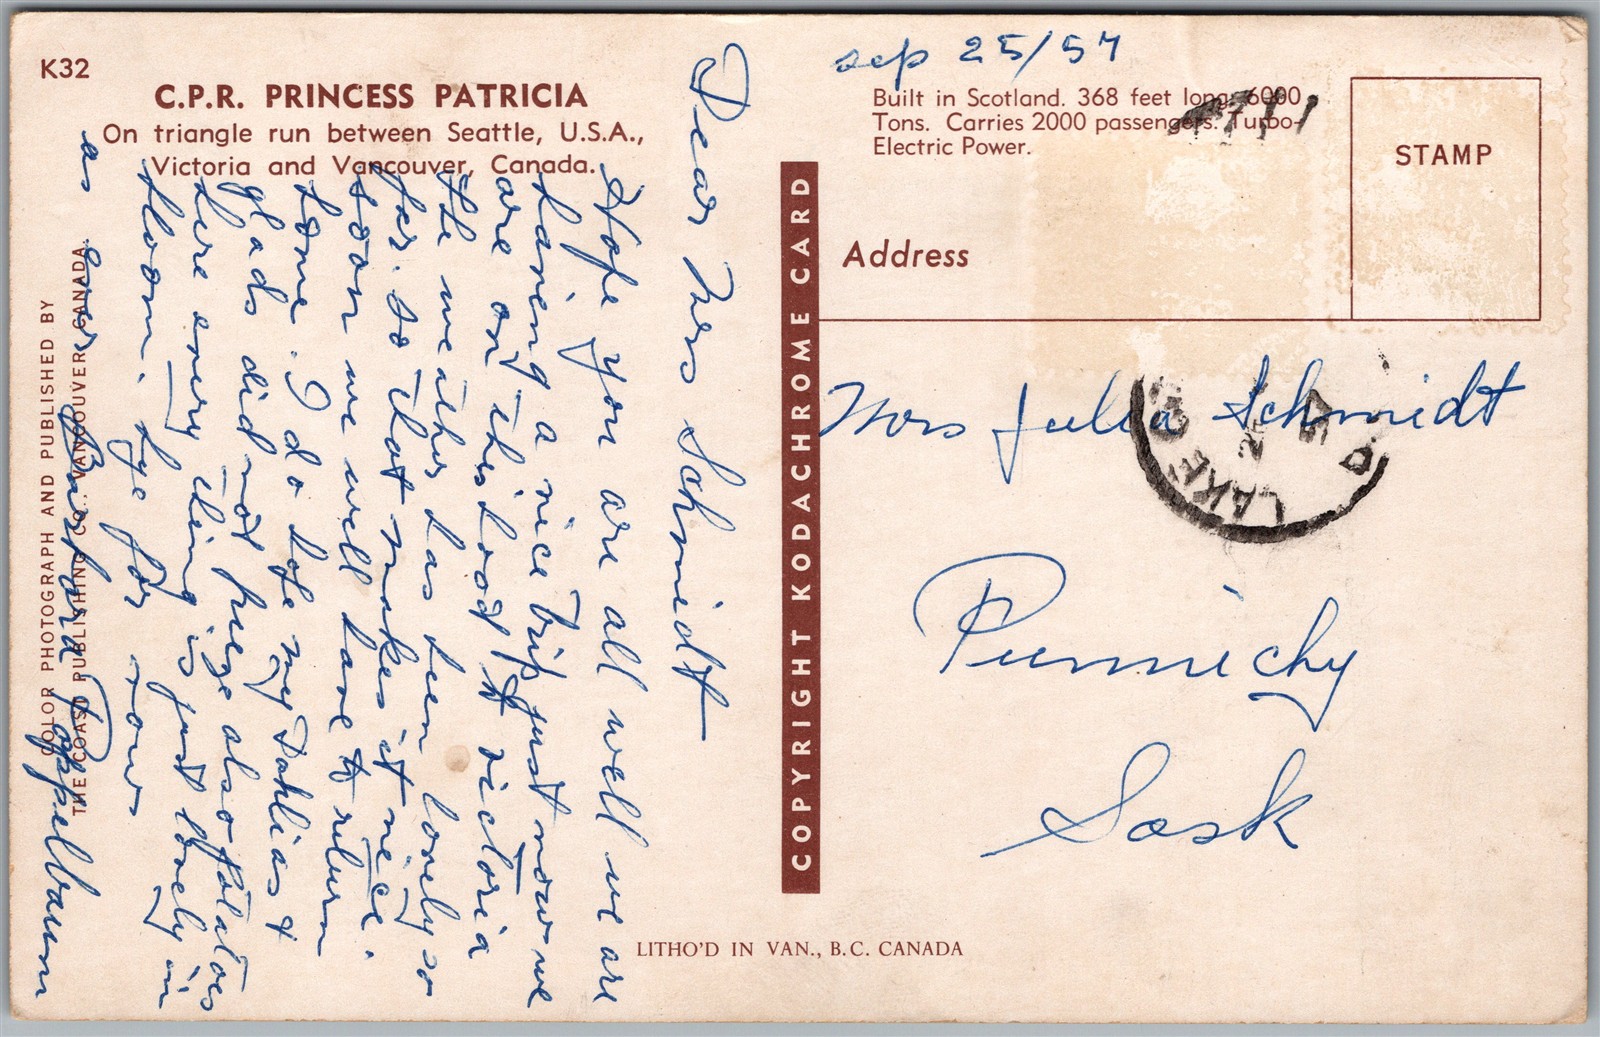 K32
C.P.R. PRINCESS PATRICIA
On triangle run between Seattle, U.S.A.,
Victoria and Vancouver, Canada.
COLOR PHOTOGRAPH AND PUBLISHED BY
THE COAST PUBLISHING CO., VANCOUVER, CANADA.
Dear Mrs Schmidt
Hope you are all well we are
having a nice trip just now we
are on this boat to victoria
the weather has been lovely so
far. so that makes it nice.
soon we will have to return
home. I do hope my Dahlias &
glads did not freeze also potatoes
here every thing is just lovely in
bloom. bye for now
as ever Barbara Poppelbaum
COPYRIGHT KODACHROME CARD
sep 25/57
Built in Scotland. 368 feet long. 6000
Tons. Carries 2000 passengers. Turbo-
Electric Power.
STAMP
Address
Mrs Julia Schmidt
Punnichy
Sask
LAKE
LITHO'D IN VAN., B.C. CANADA